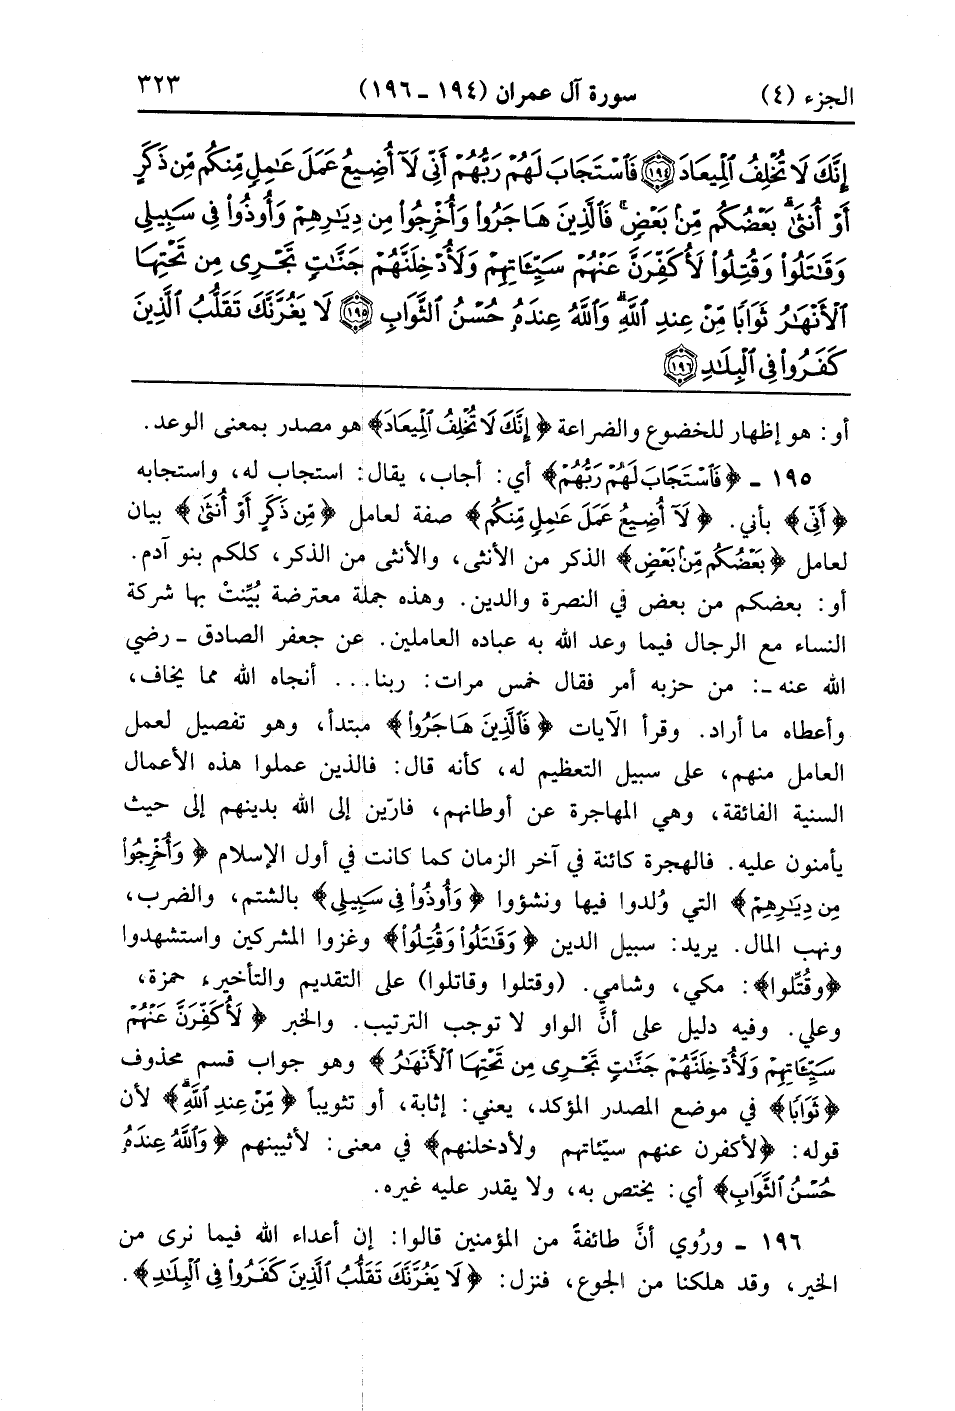 الجزء (٤) سورة آل عمران (١٩٤ ـ ١٩٦) ٣٢٣
إِنَّكَ لَا تُخْلِفُ ٱلْمِيعَادَ ١٩٤ فَٱسْتَجَابَ لَهُمْ رَبُّهُمْ أَنِّى لَآ أُضِيعُ عَمَلَ عَٰمِلٍ مِّنكُم مِّن ذَكَرٍ
أَوْ أُنثَىٰ ۖ بَعْضُكُم مِّنۢ بَعْضٍ ۖ فَٱلَّذِينَ هَاجَرُوا۟ وَأُخْرِجُوا۟ مِن دِيَٰرِهِمْ وَأُوذُوا۟ فِى سَبِيلِى
وَقَٰتَلُوا۟ وَقُتِلُوا۟ لَأُكَفِّرَنَّ عَنْهُمْ سَيِّـَٔاتِهِمْ وَلَأُدْخِلَنَّهُمْ جَنَّٰتٍ تَجْرِى مِن تَحْتِهَا
ٱلْأَنْهَٰرُ ثَوَابًا مِّنْ عِندِ ٱللَّهِ ۗ وَٱللَّهُ عِندَهُۥ حُسْنُ ٱلثَّوَابِ ١٩٥ لَا يَغُرَّنَّكَ تَقَلُّبُ ٱلَّذِينَ
كَفَرُوا۟ فِى ٱلْبِلَٰدِ ١٩٦
أو: هو إظهار للخضوع والضراعة ﴿إِنَّكَ لَا تُخْلِفُ ٱلْمِيعَادَ﴾ هو مصدر بمعنى الوعد.
١٩٥ ـ ﴿فَٱسْتَجَابَ لَهُمْ رَبُّهُمْ﴾ أي: أجاب، يقال: استجاب له، واستجابه
﴿أَنِّى﴾ بأني. ﴿لَآ أُضِيعُ عَمَلَ عَٰمِلٍ مِّنكُم﴾ صفة لعامل ﴿مِّن ذَكَرٍ أَوْ أُنثَىٰ﴾ بيان
لعامل ﴿بَعْضُكُم مِّنۢ بَعْضٍ﴾ الذكر من الأنثى، والأنثى من الذكر، كلكم بنو آدم.
أو: بعضكم من بعض في النصرة والدين. وهذه جملة معترضة بُيِّنتْ بها شركة
النساء مع الرجال فيما وعد الله به عباده العاملين. عن جعفر الصادق ـ رضي
الله عنه ـ: من حزبه أمر فقال خمس مرات: ربنا... أنجاه الله مما يخاف،
وأعطاه ما أراد. وقرأ الآيات ﴿فَٱلَّذِينَ هَاجَرُوا۟﴾ مبتدأ، وهو تفصيل لعمل
العامل منهم، على سبيل التعظيم له، كأنه قال: فالذين عملوا هذه الأعمال
السنية الفائقة، وهي المهاجرة عن أوطانهم، فارّين إلى الله بدينهم إلى حيث
يأمنون عليه. فالهجرة كائنة في آخر الزمان كما كانت في أول الإسلام ﴿وَأُخْرِجُوا۟
مِن دِيَٰرِهِمْ﴾ التي وُلدوا فيها ونشؤوا ﴿وَأُوذُوا۟ فِى سَبِيلِى﴾ بالشتم، والضرب،
ونهب المال. يريد: سبيل الدين ﴿وَقَٰتَلُوا۟ وَقُتِلُوا۟﴾ وغزوا المشركين واستشهدوا
﴿وقُتِّلوا﴾: مكي، وشامي. (وقتلوا وقاتلوا) على التقديم والتأخير، حمزة،
وعلي. وفيه دليل على أنَّ الواو لا توجب الترتيب. والخبر ﴿لَأُكَفِّرَنَّ عَنْهُمْ
سَيِّـَٔاتِهِمْ وَلَأُدْخِلَنَّهُمْ جَنَّٰتٍ تَجْرِى مِن تَحْتِهَا ٱلْأَنْهَٰرُ﴾ وهو جواب قسم محذوف
﴿ثَوَابًا﴾ في موضع المصدر المؤكد، يعني: إثابة، أو تثويباً ﴿مِّنْ عِندِ ٱللَّهِ ۗ﴾ لأن
قوله: ﴿لأكفرن عنهم سيّئاتهم ولأدخلنهم﴾ في معنى: لأثيبنهم ﴿وَٱللَّهُ عِندَهُۥ
حُسْنُ ٱلثَّوَابِ﴾ أي: يختص به، ولا يقدر عليه غيره.
١٩٦ ـ ورُوي أنَّ طائفةً من المؤمنين قالوا: إن أعداء الله فيما نرى من
الخير، وقد هلكنا من الجوع، فنزل: ﴿لَا يَغُرَّنَّكَ تَقَلُّبُ ٱلَّذِينَ كَفَرُوا۟ فِى ٱلْبِلَٰدِ﴾.